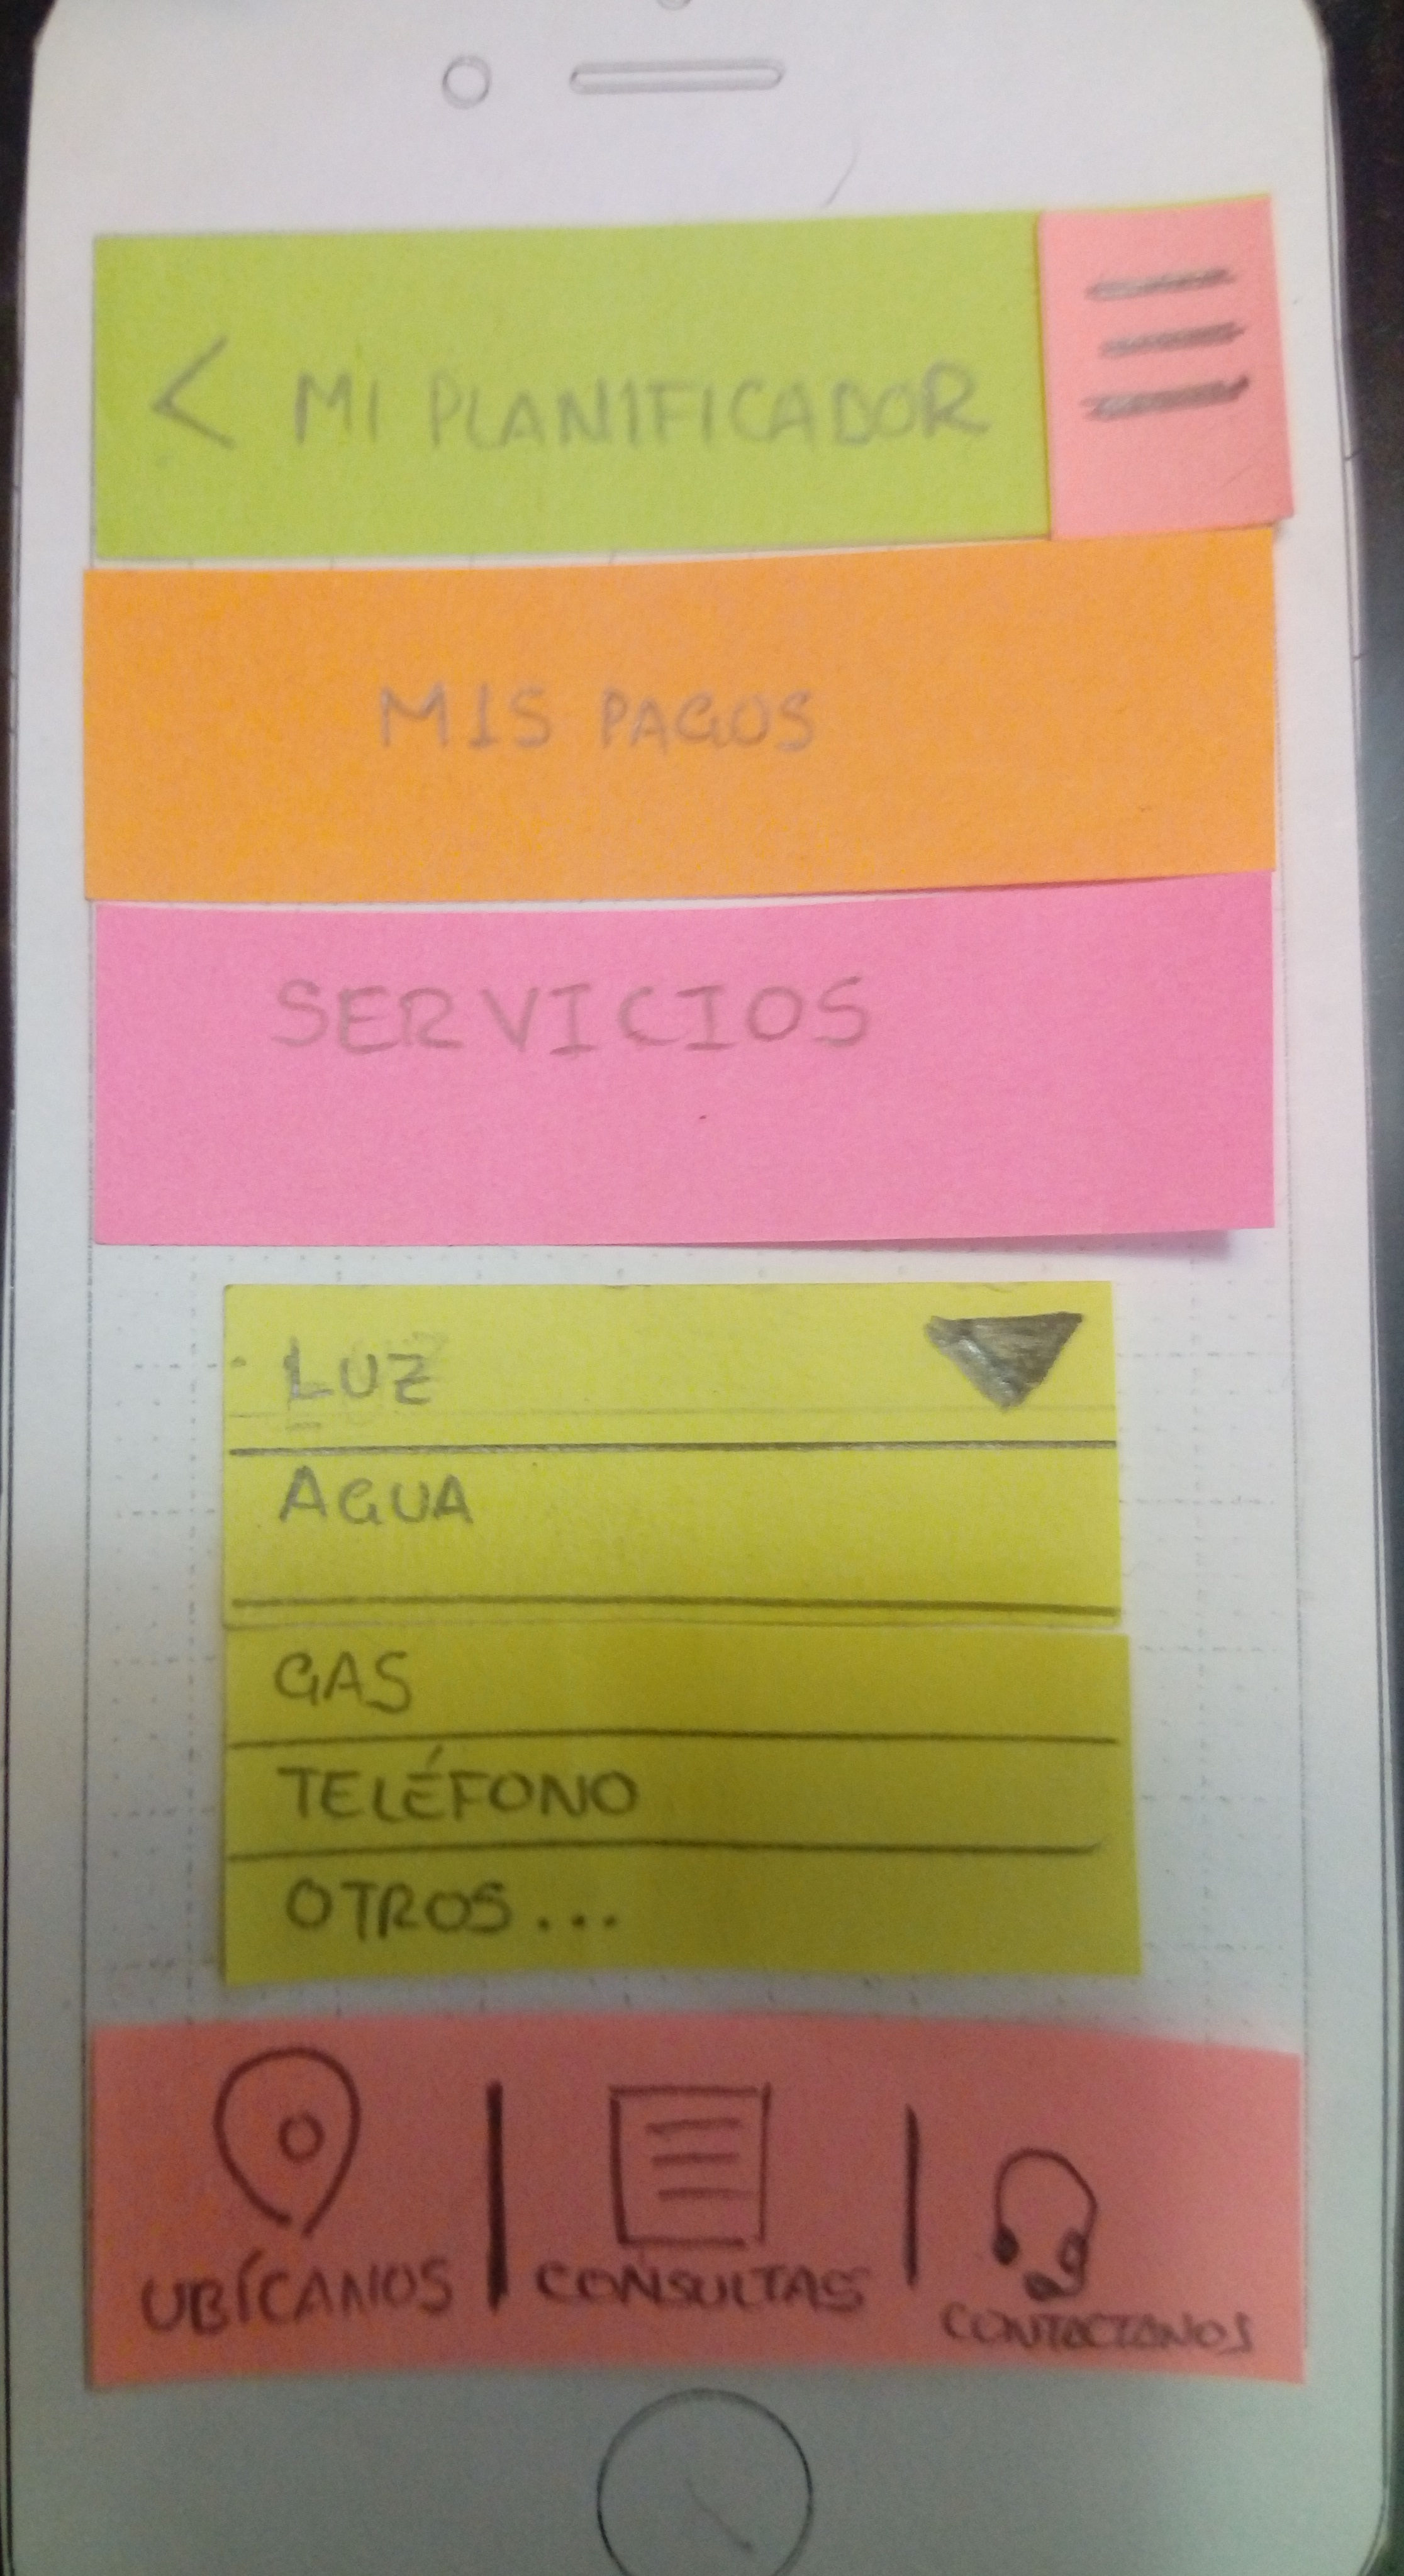 < MI PLANIFICADOR
MIS PAGOS
SERVICIOS
LUZ
AGUA
GAS
TELÉFONO
OTROS...
UBÍCANOS
CONSULTAS
CONTACTANOS